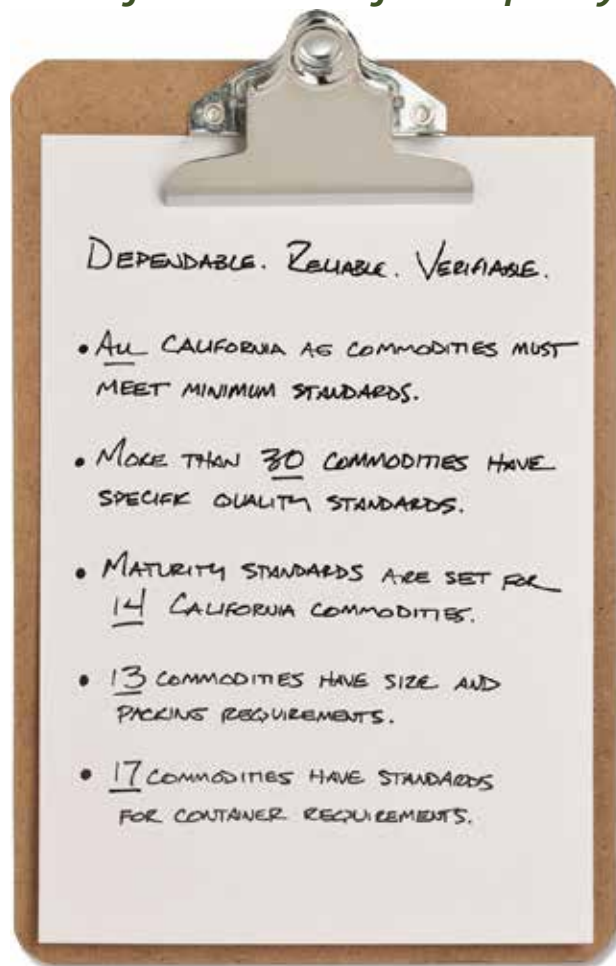 DEPENDABLE. RELIABLE. VERIFIABLE.
• ALL CALIFORNIA AG COMMODITIES MUST
MEET MINIMUM STANDARDS.
• MORE THAN 30 COMMODITIES HAVE
SPECIFIC QUALITY STANDARDS.
• MATURITY STANDARDS ARE SET FOR
14 CALIFORNIA COMMODITIES.
• 13 COMMODITIES HAVE SIZE AND
PACKING REQUIREMENTS.
• 17 COMMODITIES HAVE STANDARDS
FOR CONTAINER REQUIREMENTS.